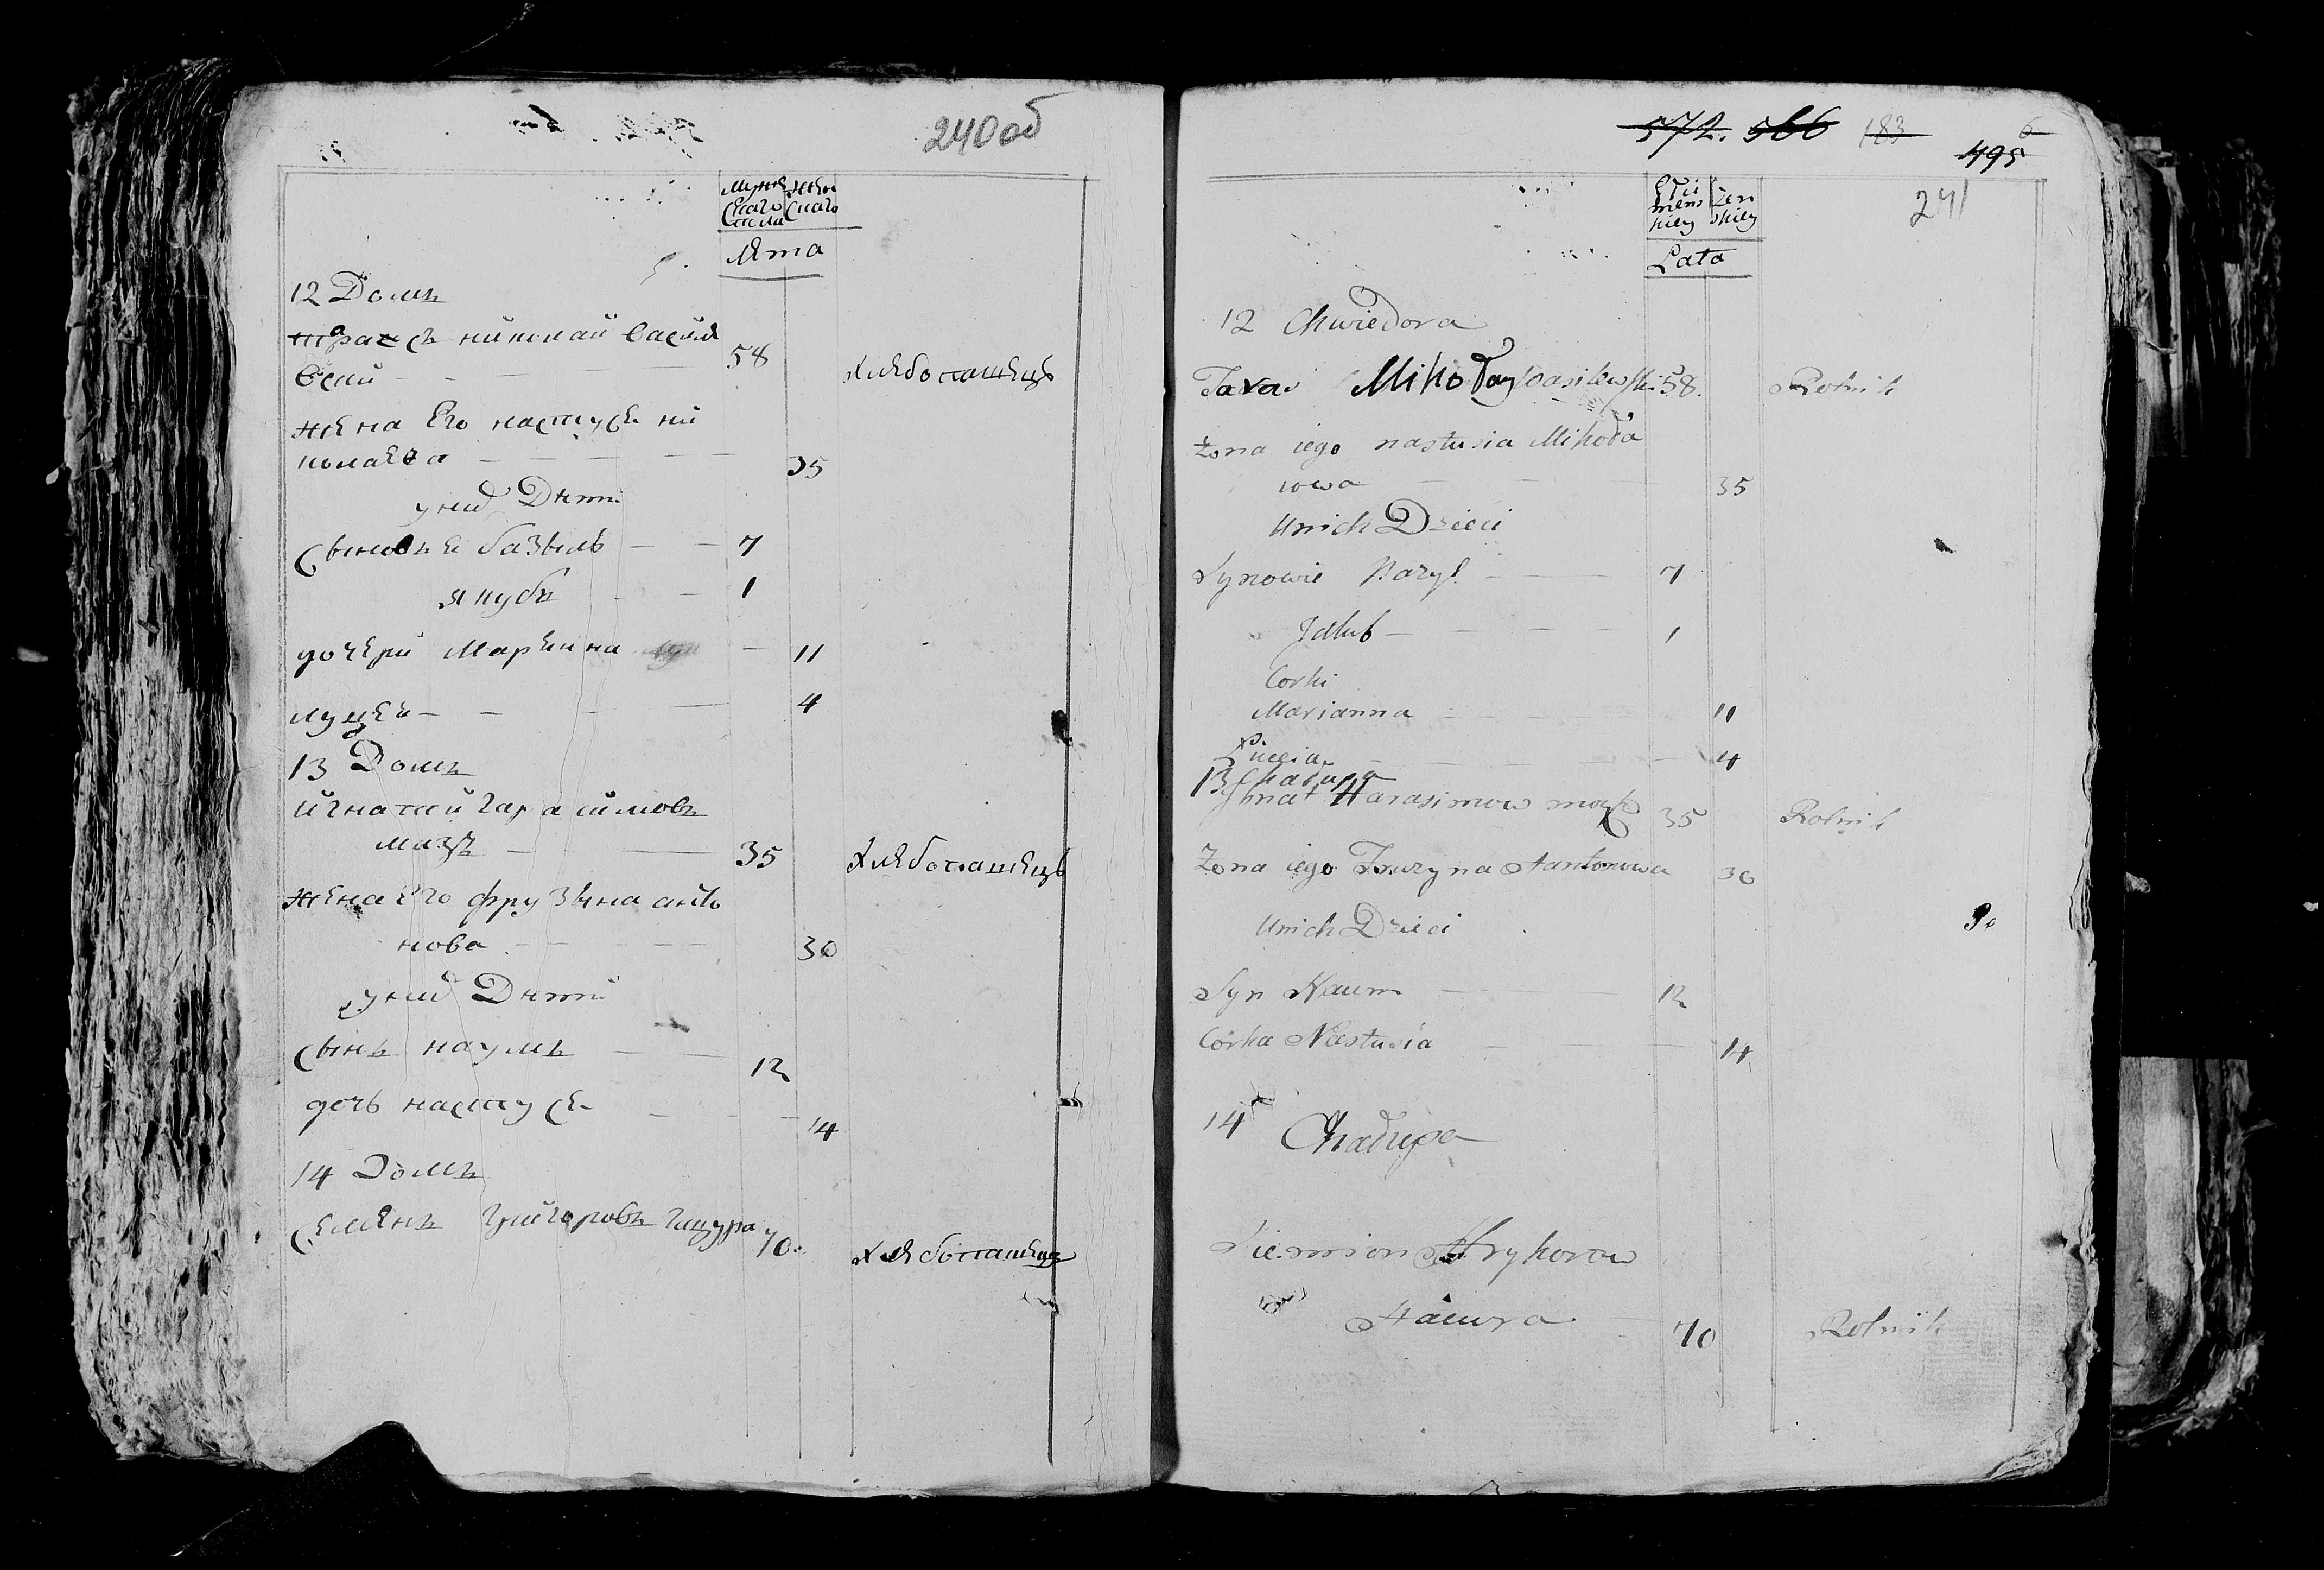 240об
Мужескаго пола
Женскаго
Лѣта
12 Домъ
Тарасъ николай василе
вский 58 хлебопашецъ
жена Его настуся ни
колаева 35
у них Дети
Сыновья базыль 7
якубъ 1
дочери Марьянна 11
луцея 4
13 Домъ
игнатий гарасимовъ
мазъ 35 хлебопашецъ
жена его фрузына анто
нова 30
у них Дети
сынъ наумъ 12
дочь настуся 14
14 Домъ
семенъ григоровъ гацура 70 хлебопашецъ
572. 566 183
6
495
241
Płci
mens
kiey
żen
skiey
Lata
12 Chwiedora
Taras Mikołay Wasilewski 58. Rolnik
Żona iego nastusia Mikoła
iowa 35
Unich Dzieci
Synowie Bazyl 7
Jakub 1
Corki
Marianna 11
Łuceia 4
13 Chałupa
Ihnat Harasimow maz 35 Rolnik
Żona iego Fruzyna Antonowa 30
Unich Dzieci
Syn Naum 12
Corka Nastusia 14
14 Chałupa
Siemion Hryhorow
Hacura 70 Rolnik